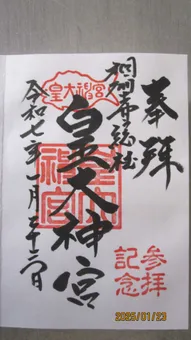 奉拝
相模専総社
皇大神宮
皇大神宮
令和七年一月二十三日
参拝
記念
2025/01/23